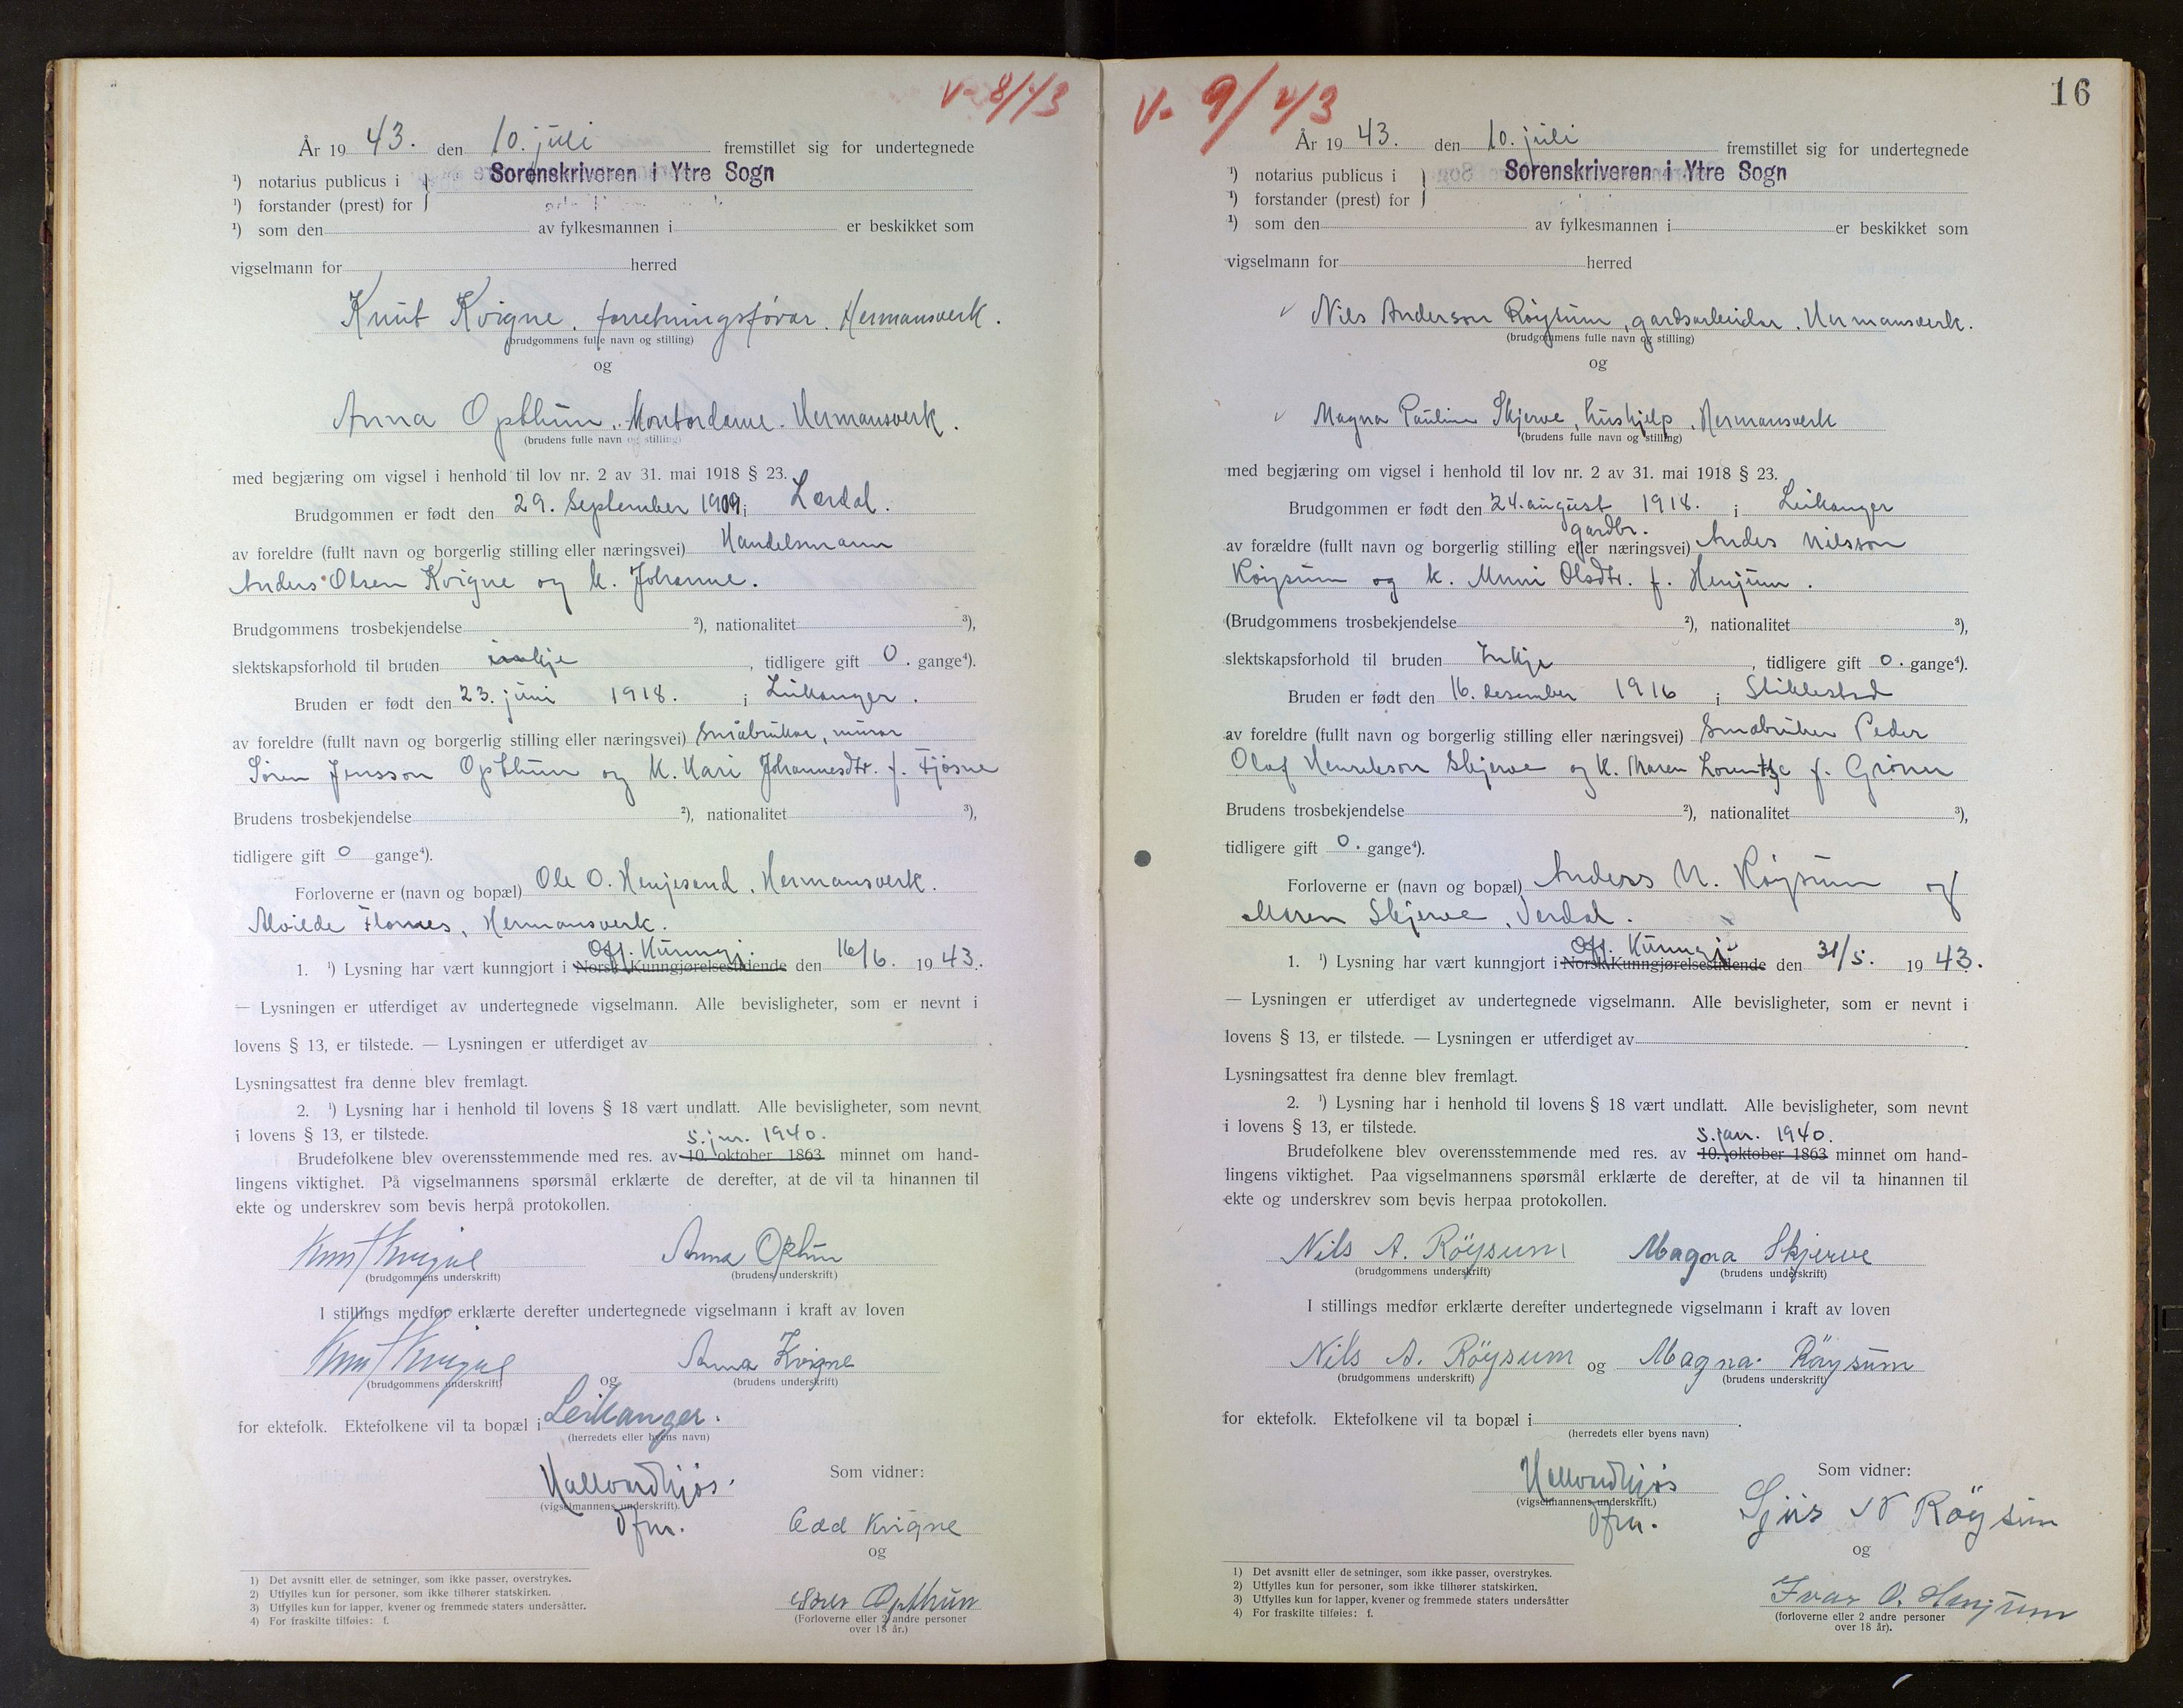 V- 8/43
År 19 43. den 10. juli fremstillet sig for undertegnede
¹) notarius publicus i } Sorenskriveren i Ytre Sogn
¹) forstander (prest) for
¹) som den av fylkesmannen i er beskikket som
vigselmann for herred
Knut Kvigne, forretningsførar. Hermansverk.
(brudgommens fulle navn og stilling)
og
Anna Opthun, Kontordame. Hermansverk.
(brudens fulle navn og stilling)
med begjæring om vigsel i henhold til lov nr. 2 av 31. mai 1918 § 23.
Brudgommen er født den 29. September 1909 i Lærdal.
av foreldre (fullt navn og borgerlig stilling eller næringsvei) Handelsmann
Anders Olsen Kvigne og k. Johanne.
Brudgommens trosbekjendelse ²), nationalitet ³),
slektskapsforhold til bruden inkje , tidligere gift 0. gange⁴).
Bruden er født den 23. juni 1918. i Leikanger.
av foreldre (fullt navn og borgerlig stilling eller næringsvei) Småbrukar, murar
Søren Jensson Opthun og k. Kari Johannesdtr. f. Fjøsne
Brudens trosbekjendelse ²), nationalitet ³),
tidligere gift 0 gange⁴).
Forloverne er (navn og bopæl) Ole O. Henjesand, Hermansverk.
Alvilde Flomes, Hermansverk.
Off. Kunngj.
1. ¹) Lysning har vært kunngjort i Norsk Kunngjørelsestidende den 16/6. 19 43.
— Lysningen er utferdiget av undertegnede vigselmann. Alle bevisligheter, som er nevnt i
lovens § 13, er tilstede. — Lysningen er utferdiget av
Lysningsattest fra denne blev fremlagt.
2. ¹) Lysning har i henhold til lovens § 18 vært undlatt. Alle bevisligheter, som nevnt
i lovens § 13, er tilstede.
5. jan. 1940.
Brudefolkene blev overensstemmende med res. av 10. oktober 1863 minnet om hand-
lingens viktighet. På vigselmannens spørsmål erklærte de derefter, at de vil ta hinannen til
ekte og underskrev som bevis herpå protokollen.
Knut Kvigne Anna Opthun
(brudgommens underskrift) (brudens underskrift)
I stillings medfør erklærte derefter undertegnede vigselmann i kraft av loven
Knut Kvigne og Anna Kvigne
(brudgommens underskrift) (brudens underskrift)
for ektefolk. Ektefolkene vil ta bopæl i Leikanger.
(herredets eller byens navn)
Hallvard Kjøs.
(vigselmannens underskrift).
dfm.
Som vidner:
Odd Kvigne
og
Søren Opthun
(Forloverne eller 2 andre personer
over 18 år.)
1) Det avsnitt eller de setninger, som ikke passer, overstrykes.
2) Utfylles kun for personer, som ikke tilhører statskirken.
3) Utfylles kun for lapper, kvener og fremmede staters undersåtter.
4) For fraskilte tilføies: f.
16
V- 9/43
År 19 43. den 10. juli fremstillet sig for undertegnede
¹) notarius publicus i } Sorenskriveren i Ytre Sogn
¹) forstander (prest) for
¹) som den av fylkesmannen i er beskikket som
vigselmann for herred
✓ Nils Anderson Røysum, gardsarbeidar, Hermansverk.
(brudgommens fulle navn og stilling)
og
✓ Magna Pauline Skjerve, hushjelp, Hermansverk
(brudens fulle navn og stilling)
med begjæring om vigsel i henhold til lov nr. 2 av 31. mai 1918 § 23.
Brudgommen er født den 24. august 1918. i Leikanger
gardbr.
av forældre (fullt navn og borgerlig stilling eller næringsvei) Andes Nilsson
Røysum og k. Unni Olsdtr. f. Henjum.
(Brudgommens trosbekjendelse ²), nationalitet ³),
slektskapsforhold til bruden Inkje , tidligere gift 0. gange⁴).
Bruden er født den 16. desember 1916 i Stiklestad
av foreldre (fullt navn og borgerlig stilling eller næringsvei) Småbruker Peder
Olaf Henrikson Skjerve og k. Maren Lorentze f. Grønn
Brudens trosbekjendelse ²), nationalitet ³),
tidligere gift 0. gange⁴).
Forloverne er (navn og bopæl) Anders N. Røysum og
Maren Skjerve, Verdal.
Off. Kunngj.
1. ¹) Lysning har vært kunngjort i Norsk Kunngjørelsestidende den 31/5. 19 43.
— Lysningen er utferdiget av undertegnede vigselmann. Alle bevisligheter, som er nevnt i
lovens § 13, er tilstede. — Lysningen er utferdiget av
Lysningsattest fra denne blev fremlagt.
2. ¹) Lysning har i henhold til lovens § 18 vært undlatt. Alle bevisligheter, som nevnt
i lovens § 13, er tilstede.
5. jan. 1940.
Brudefolkene blev overensstemmende med res. av 10. oktober 1863 minnet om hand-
lingens viktighet. Paa vigselmannens spørsmål erklærte de derefter, at de vil ta hinannen til
ekte og underskrev som bevis herpaa protokollen.
Nils A. Röysum Magna Skjerve
(brudgommens underskrift) (brudens underskrift)
I stillings medfør erklærte derefter undertegnede vigselmann i kraft av loven
Nils A. Röysum og Magna Röysum
(brudgommens underskrift) (brudens underskrift)
for ektefolk. Ektefolkene vil ta bopæl i
(herredets eller byens navn)
Hallvard Kjøs
(vigselmannens underskrift.)
dfm.
Som vidner:
Sjur N Röysum
og
Ivar O. Henjum
(forloverne eller 2 andre personer
over 18 år).
1) Det avsnitt eller de setninger, som ikke passer, overstrykes.
2) Utfylles kun for personer, som ikke tilhører statskirken.
3) Utfylles kun for lapper, kvener og fremmede staters undersåtter
4) For fraskilte tilføies: f.